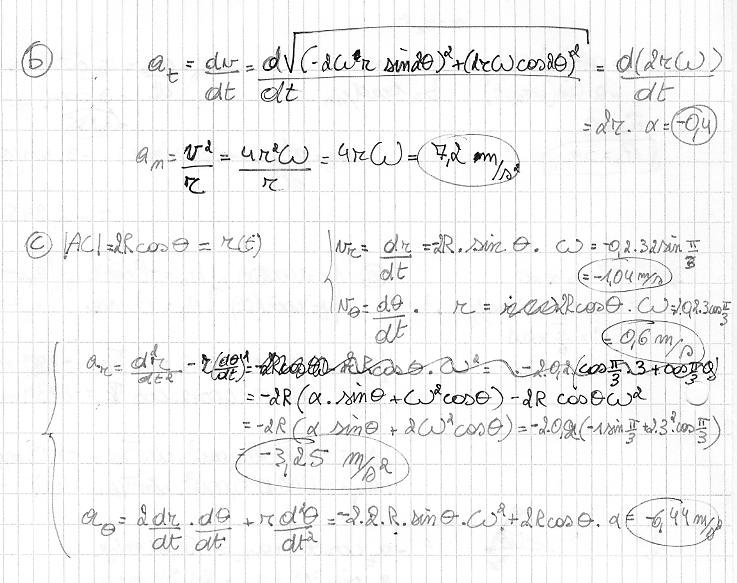 b) a_t = dv/dt = d√((-2ωr sin2θ)² + (2rω cos2θ)²)/dt = d(2rω)/dt
= 2r. α = -0,4
a_n = v²/r = 4r²ω/r = 4rω = 7,2 m/s²
c) |AC| = 2R cos θ = r(t)
v_r = dr/dt = -2R. sin θ. ω = -0,2.32 sin π/3
= -1,04 m/s
v_θ = dθ/dt . r = 2R cos θ. ω = 2.0,2.3 cos π/3
= 0,6 m/s
a_r = d²r/dt² - r(dθ/dt)²
= -2R (α. sin θ + ω² cos θ) - 2R cos θ ω²
= -2R (α sin θ + 2ω² cos θ) = -2.0,2 (-1 sin π/3 + 2.3² cos π/3)
= -3,25 m/s²
a_θ = 2 dr/dt . dθ/dt + r d²θ/dt² = -2.2.R. sin θ. ω² + 2R cos θ. α = -6,44 m/s²